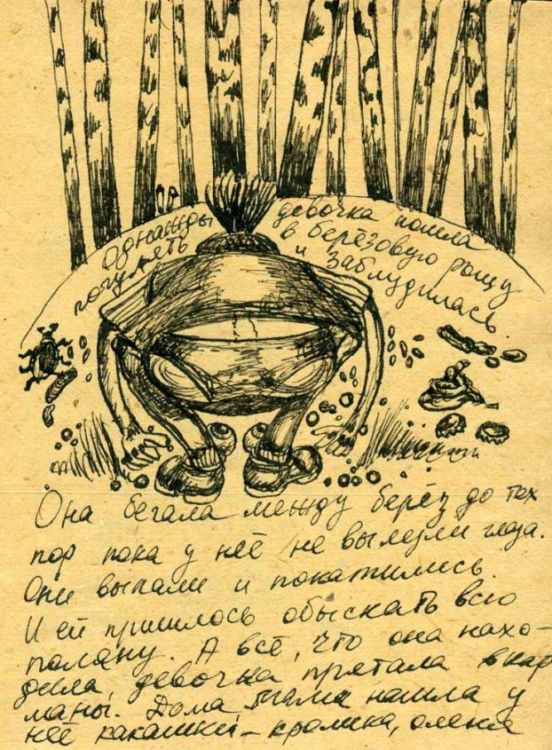 Однажды девочка пошла
погулять в берёзовую рощу
и заблудилась.
Она бегала между берёз до тех
пор пока у неё не вылезли глаза.
Они выпали и покатились.
И ей пришлось обыскать всю
поляну. А всё, что она нахо-
дила, девочка прятала в кар-
маны. Дома мама нашла у
неё какашки – кролика, оленя